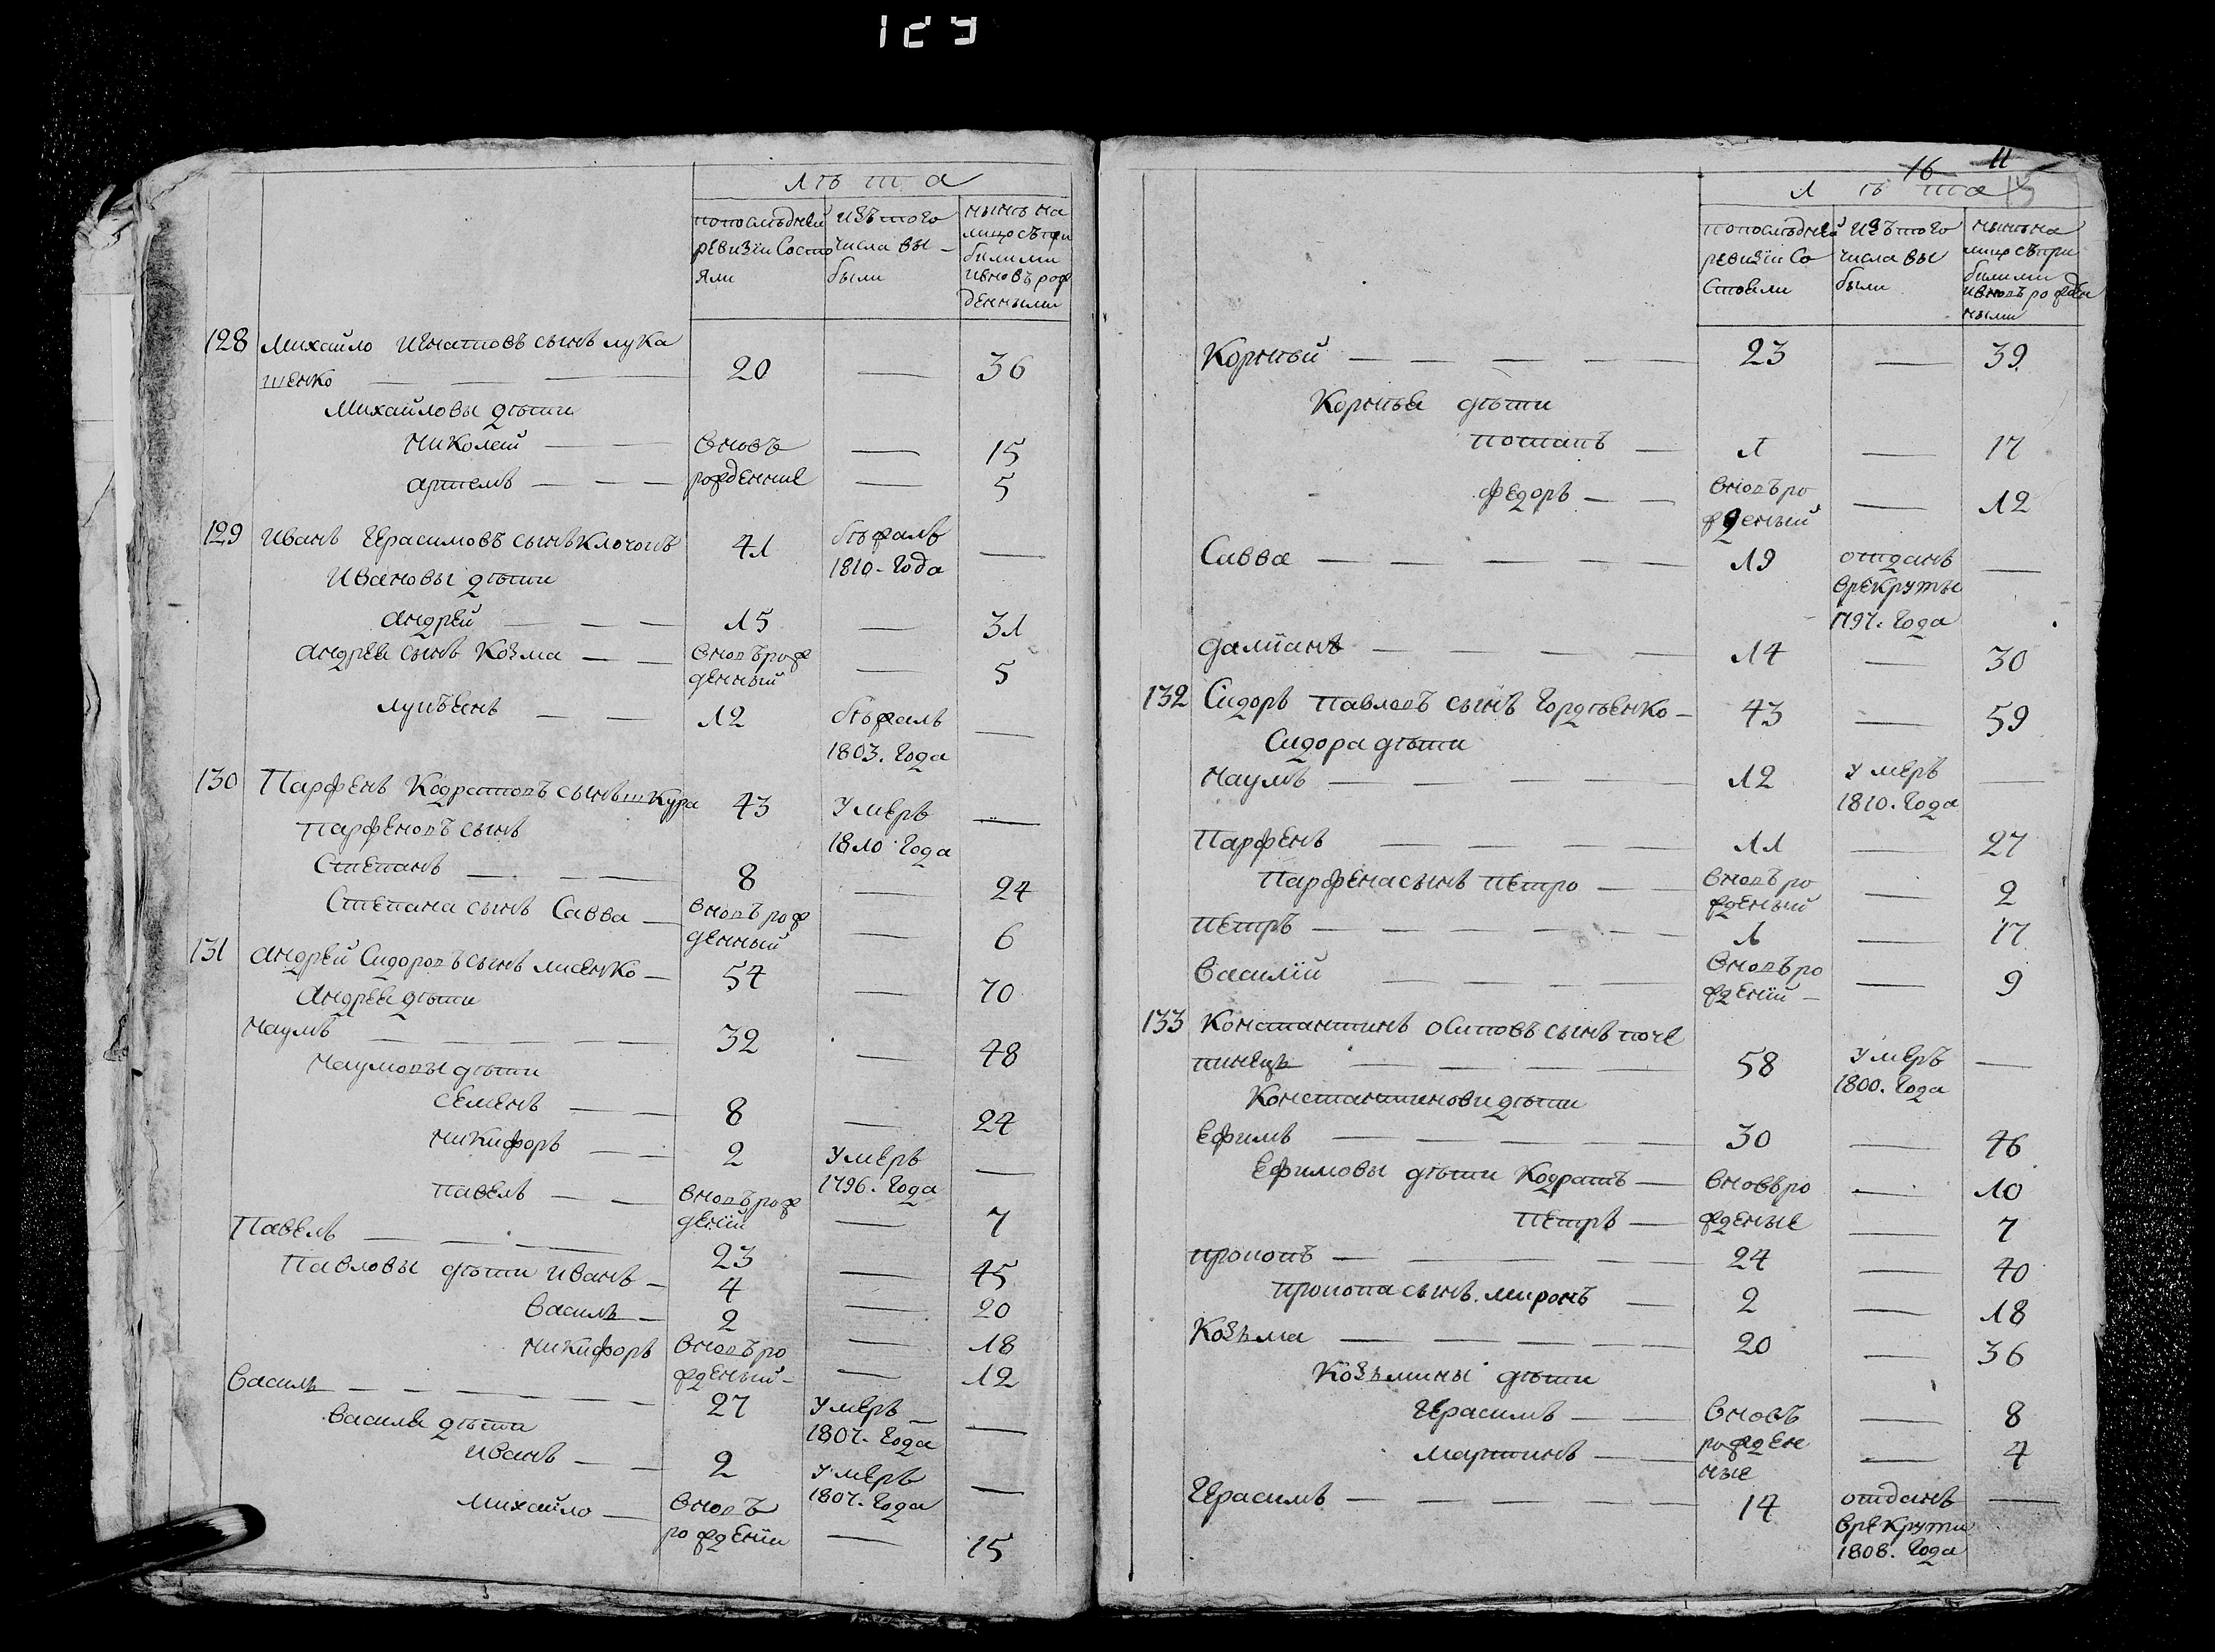 129
лѣта
попослѣдней изътого нынѣна
ревизіи Состо числа вы- лицо съпри
яли были былыми
ивновь рож
денными
128 Михайло Игнатовъ сынъ лука
шенко — 20 — 36
Михайловы дѣти
Николай — вновь — 15
артемъ — рожденние — 5
129 Иванъ Герасимовъ сынъ Клочокъ 41 бѣжалъ —
Ивановы дѣти 1810-Года
андрей — 15 — 31
андрея сынъ Козма — вновърож — 5
денный
лупъенъ — 12 бѣжалъ —
1803. Года
130 Парфенъ Кодратовъ сынъ шкура 43 Умеръ —
Парфеновъ сынъ 1810 Года
Степанъ — 8 — 24
Степана сынъ Савва — вновърож — 6
денный
131 андрей Сидоровъ сынъ лисенко — 54 — 70
Андрея дѣти
Наумъ — 32 — 48
Наумовы дѣти
Семенъ — 8 — 24
Никифоръ — 2 Умеръ —
1796. Года
павелъ — вновърож — 7
дений
Павелъ — 23 — 45
Павловы дѣти иванъ — 4 — 20
Василь — 2 — 18
Никифоръ вновъро — 12
жденый-
Василь — 27 Умеръ —
Василя дѣти 1807. Года
иванъ — 2 Умеръ —
1807. Года
Михайло — вновъ — 15
рождени
16 11
15
лѣта
попослѣдней изътого нынѣна
ревизіи Со числа вы лицо съпри
стояли были былыми
ивновъ рожден
ными
Корнѣй — 23 — 39
Корнѣя дѣти
потапъ — 1 — 17
федоръ — вновъро — 12
жденый
Савва — 19 отданъ —
врекруты
1797. Года
даміанъ — 14 — 30
132 Сидоръ Павловъ сынъ Гордѣенко — 43 — 59
Сидора дѣти
Наумъ — 12 Умеръ —
1810. Года
Парфенъ — 11 — 27
Парфена сынъ петро — вновъро — 2
жденый
петръ — 1 — 17
Василій — вновъро — 9
жденій —
133 Константинъ осиповъ сынъ поче
пинецъ — 58 Умеръ —
1800. Года
Константинови дѣти
Ефимъ — 30 — 46
Ефимовы дѣти Кодратъ — вновъро — 10
петръ — жденые — 7
прокопъ — 24 — 40
прокопа сынъ. миронъ — 2 — 18
Козьма — 20 — 36
Козьмины дѣти
Герасимъ — вновъ — 8
мартинъ — рожден — 4
ные
Герасимъ — 14 отданъ —
врекрути
1808. Года